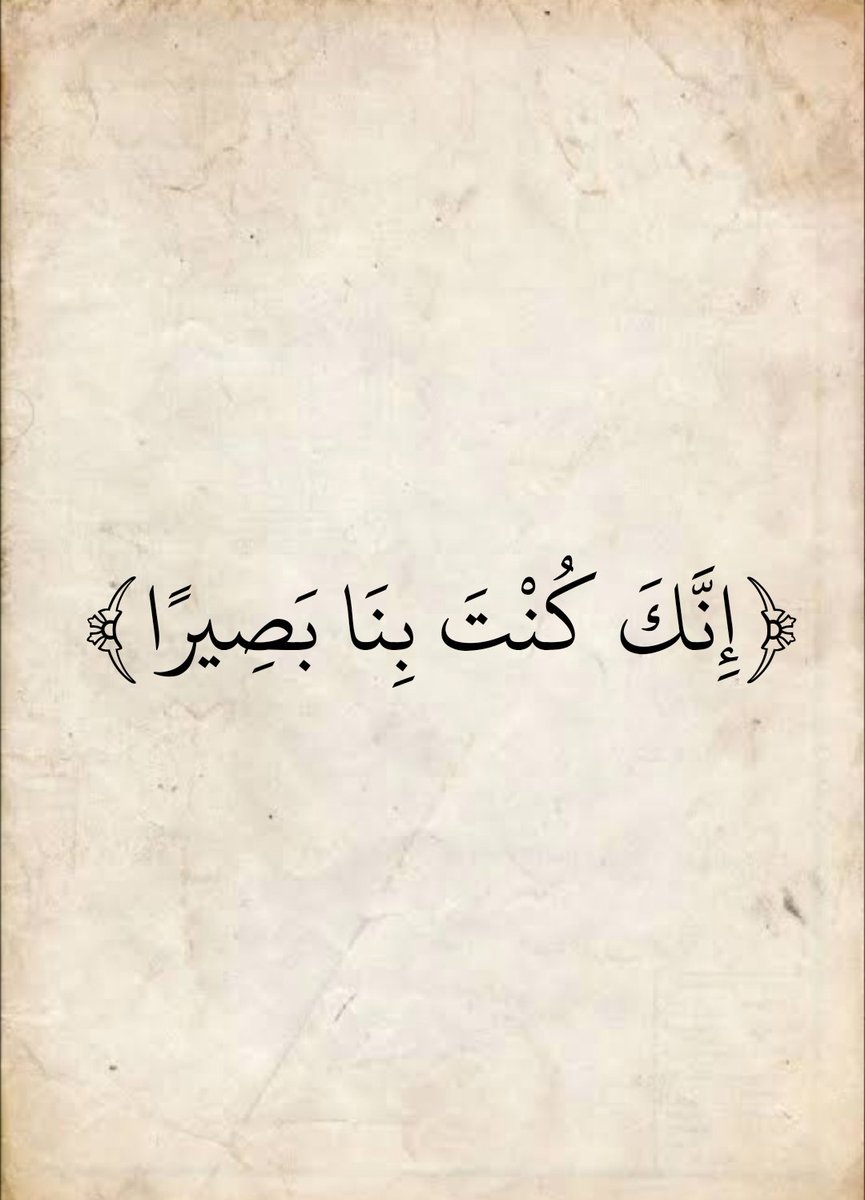 ﴿إِنَّكَ كُنْتَ بِنَا بَصِيرًا﴾